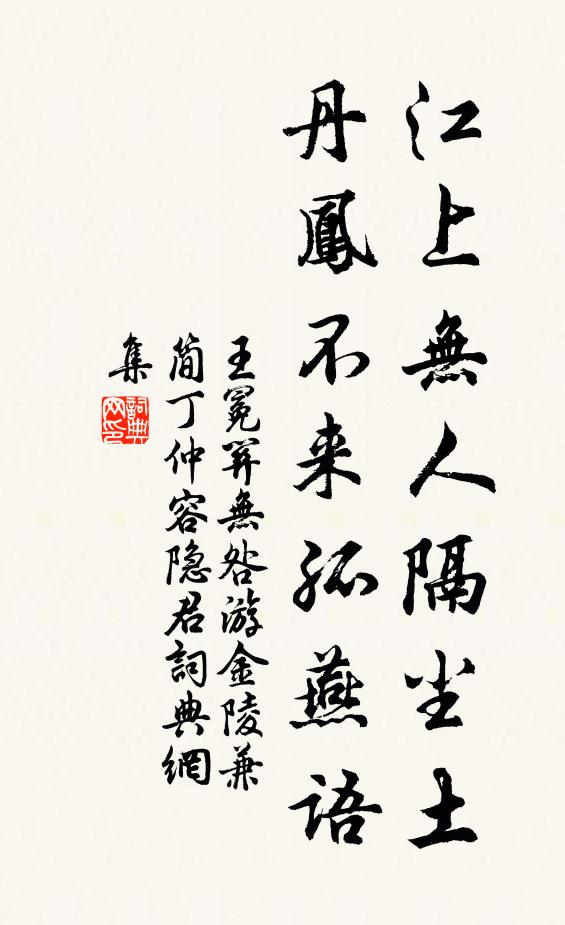 江上無人隔尘土
丹鳳不来孤燕語
王冕笄無咎游金陵兼
简丁仲容隐君詞典網
集
詞典
网印